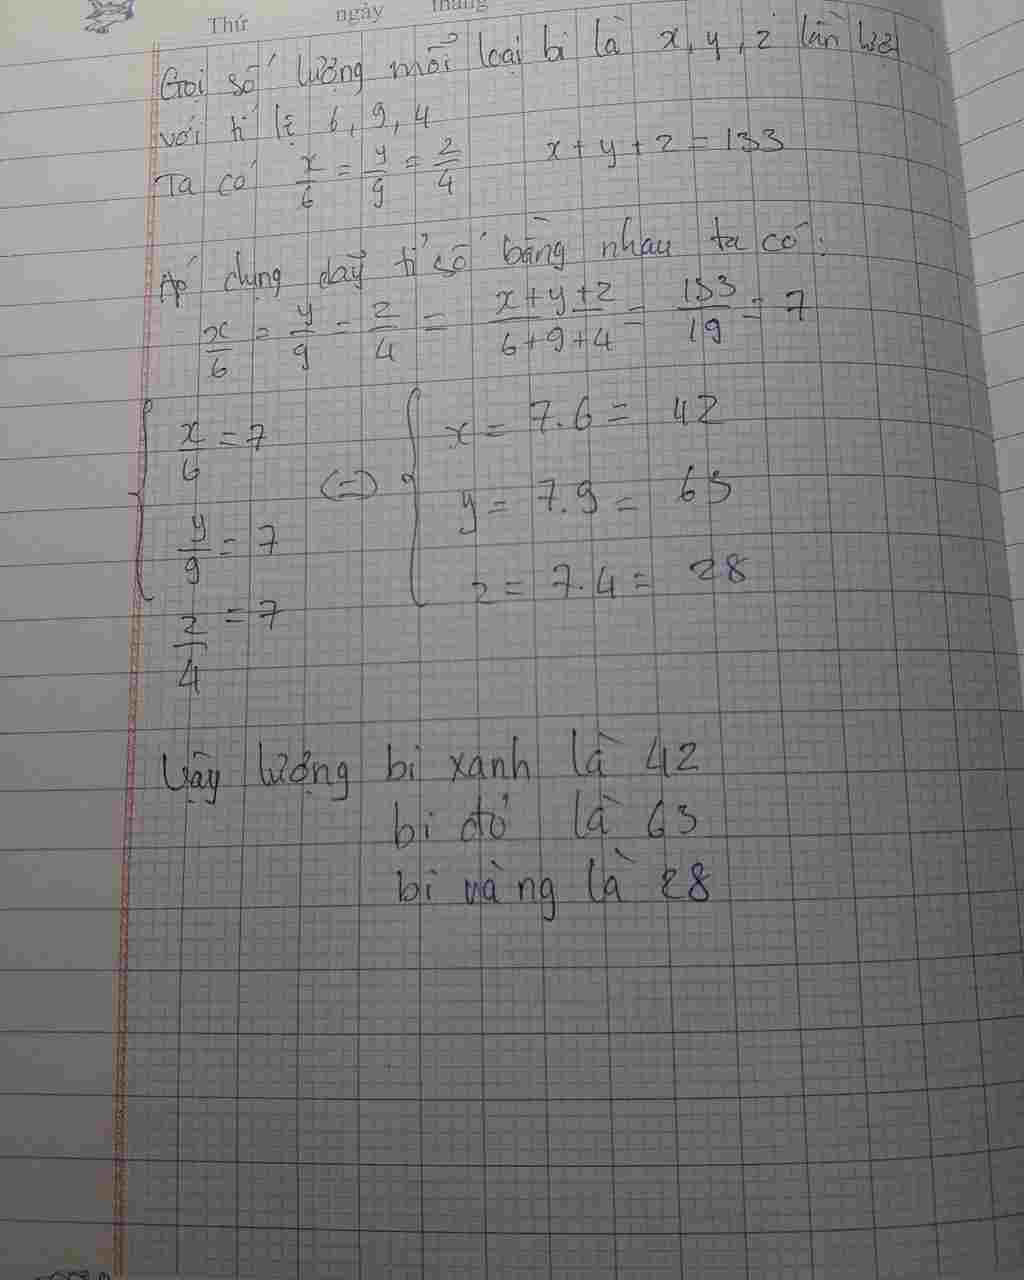 Thứ ngày tháng
Gọi số lượng mỗi loại bi là x, y, z lần lượt
với tỉ lệ 6, 9, 4
Ta có x/6 = y/9 = z/4 x + y + z = 133
Áp dụng dãy tỉ số bằng nhau ta có:
x/6 = y/9 = z/4 = (x+y+z)/(6+9+4) = 133/19 = 7
x/6 = 7 (=) x = 7.6 = 42
y/9 = 7 y = 7.9 = 63
z/4 = 7 z = 7.4 = 28
Vậy lượng bi xanh là 42
bi đỏ là 63
bi vàng là 28